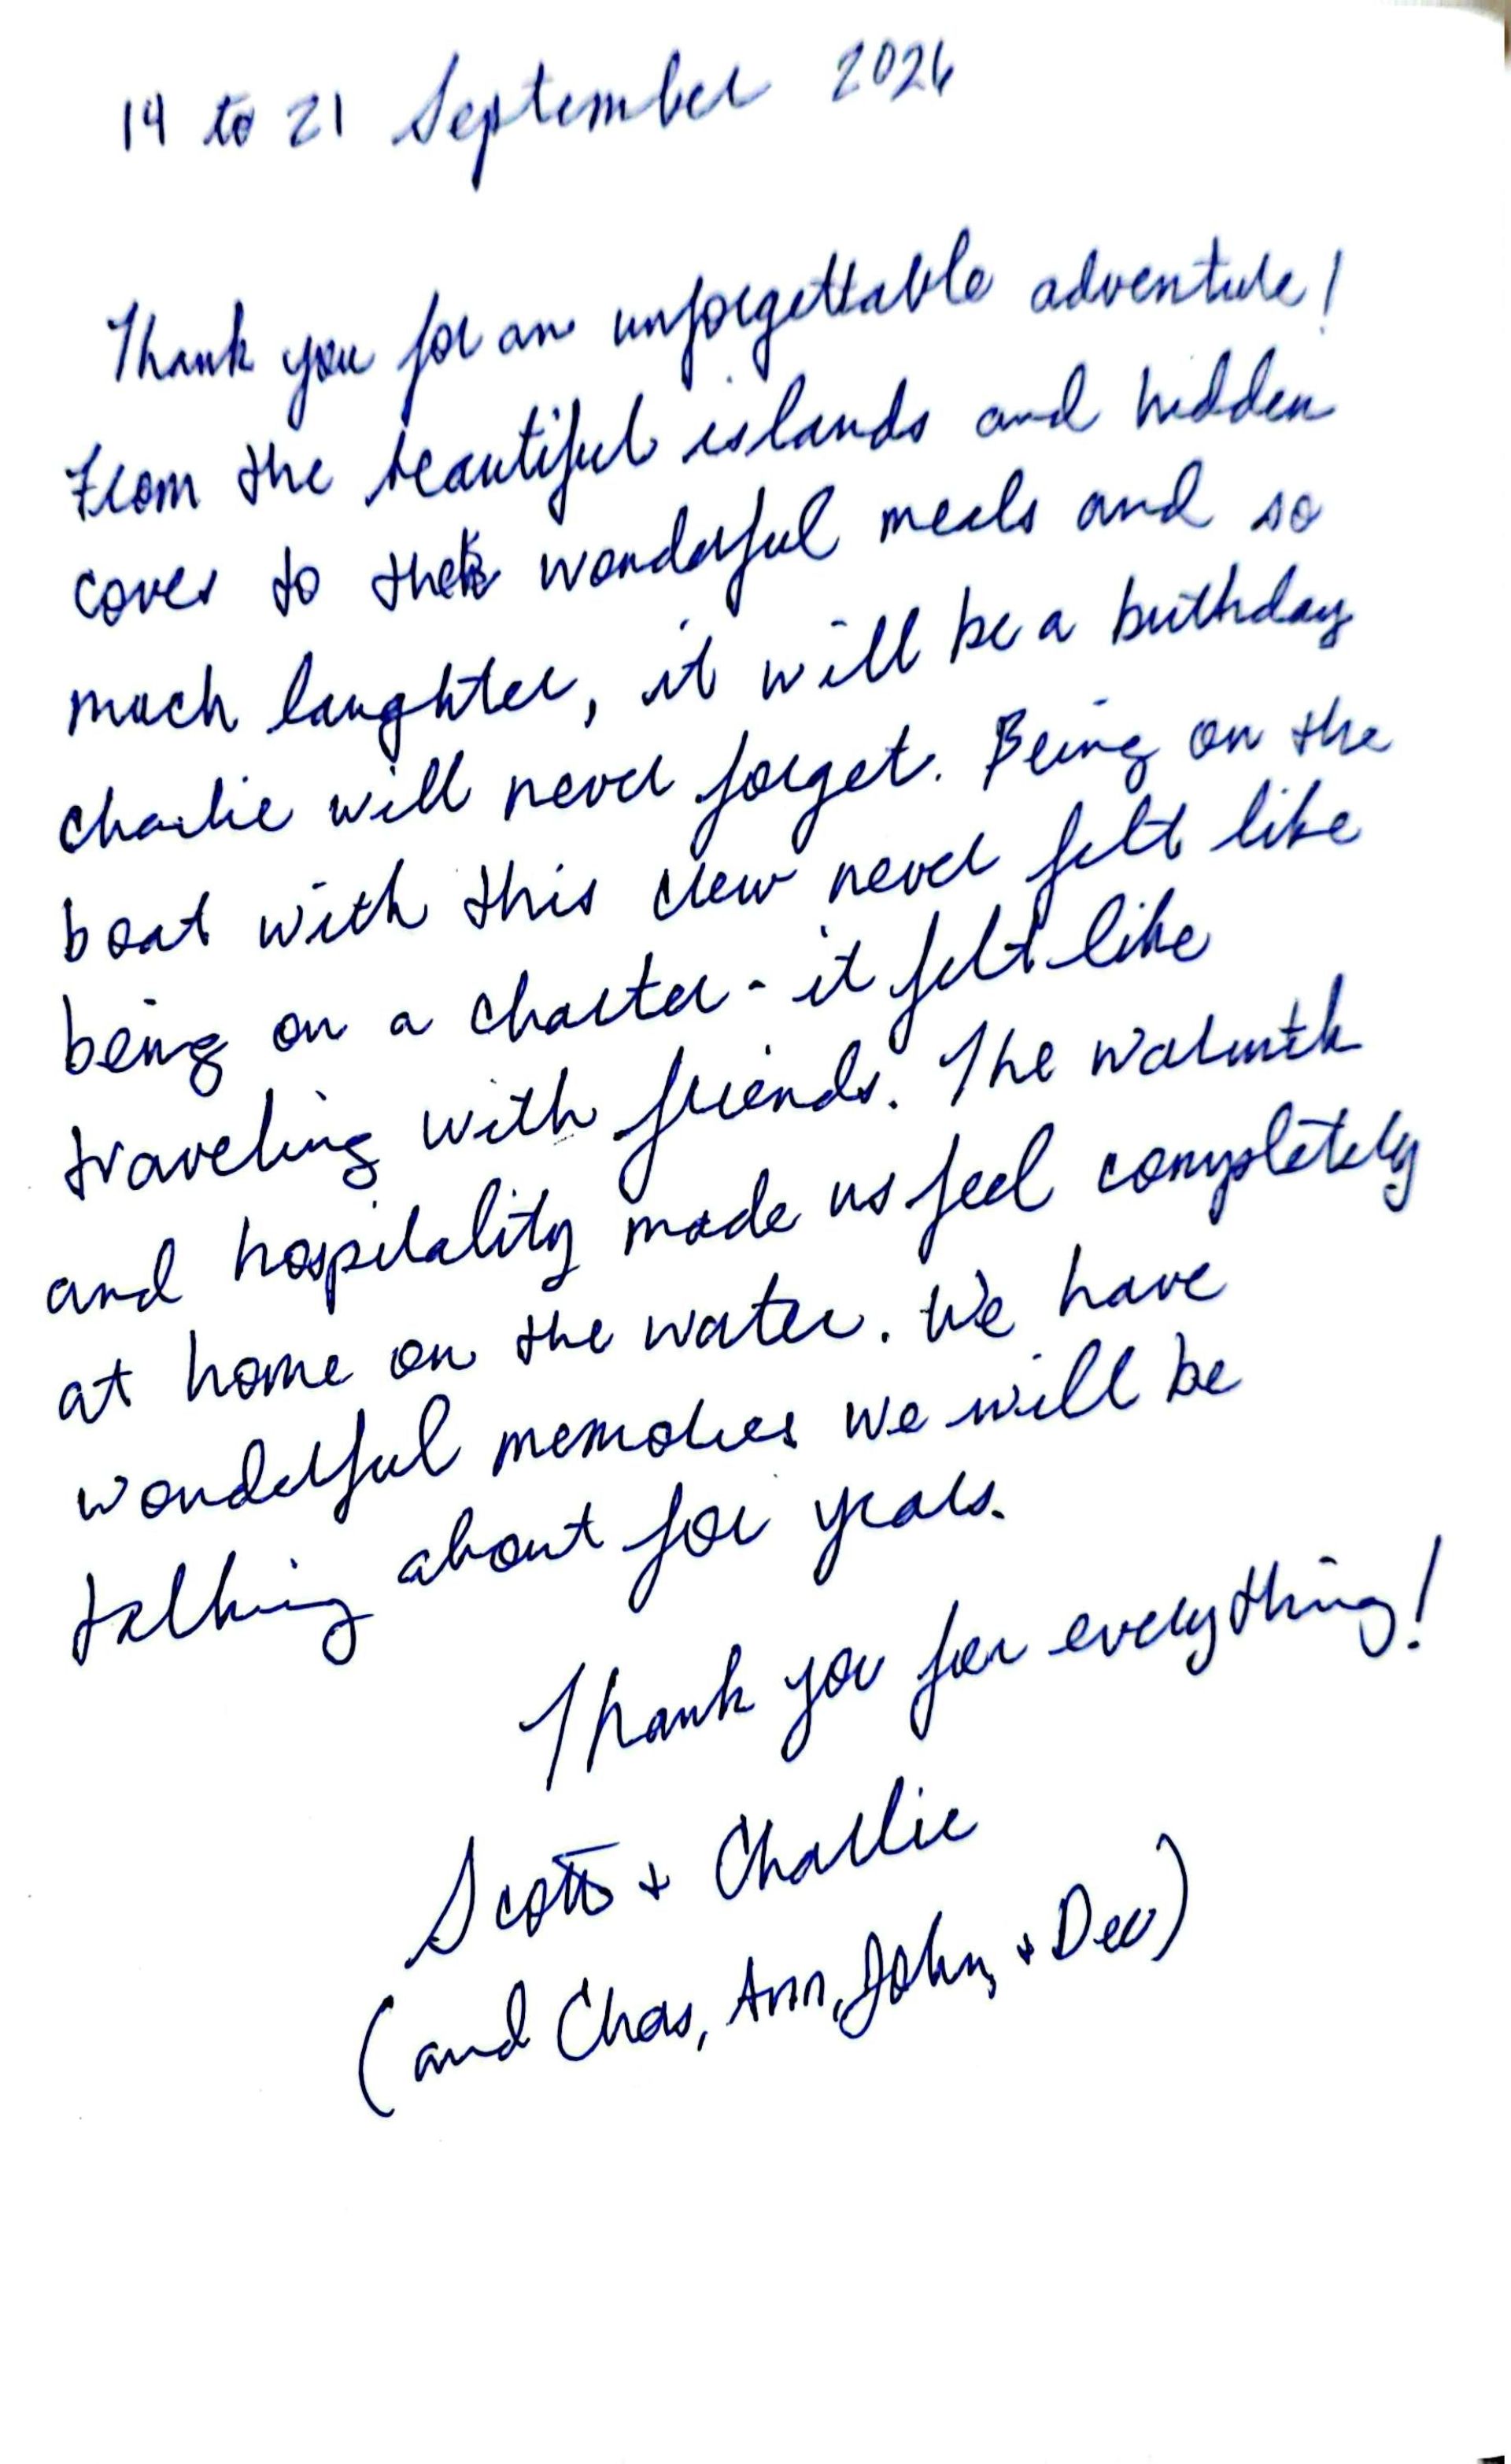 14 to 21 September 2026
Thank you for an unforgettable adventure!
From the beautiful islands and hidden
coves to the wonderful meals and so
much laughter, it will be a birthday
Charlie will never forget. Being on the
boat with this crew never felt like
being on a charter - it felt like
traveling with friends. The warmth
and hospitality made us feel completely
at home on the water. We have
wonderful memories we will be
talking about for years.
Thank you for everything!
Scott + Charlie
(and Chas, Ann, John, + Dee)